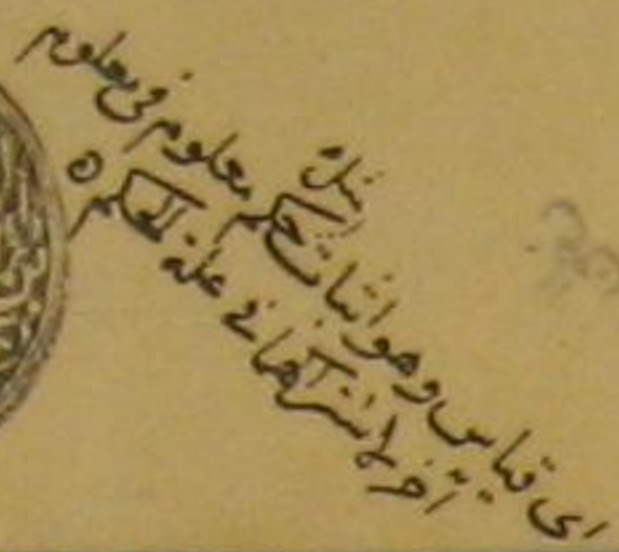 اى قياس وهو اثبات مثل حكم معلوم فى معلوم
آخر لاشتراكهما فى علة الحكم ه